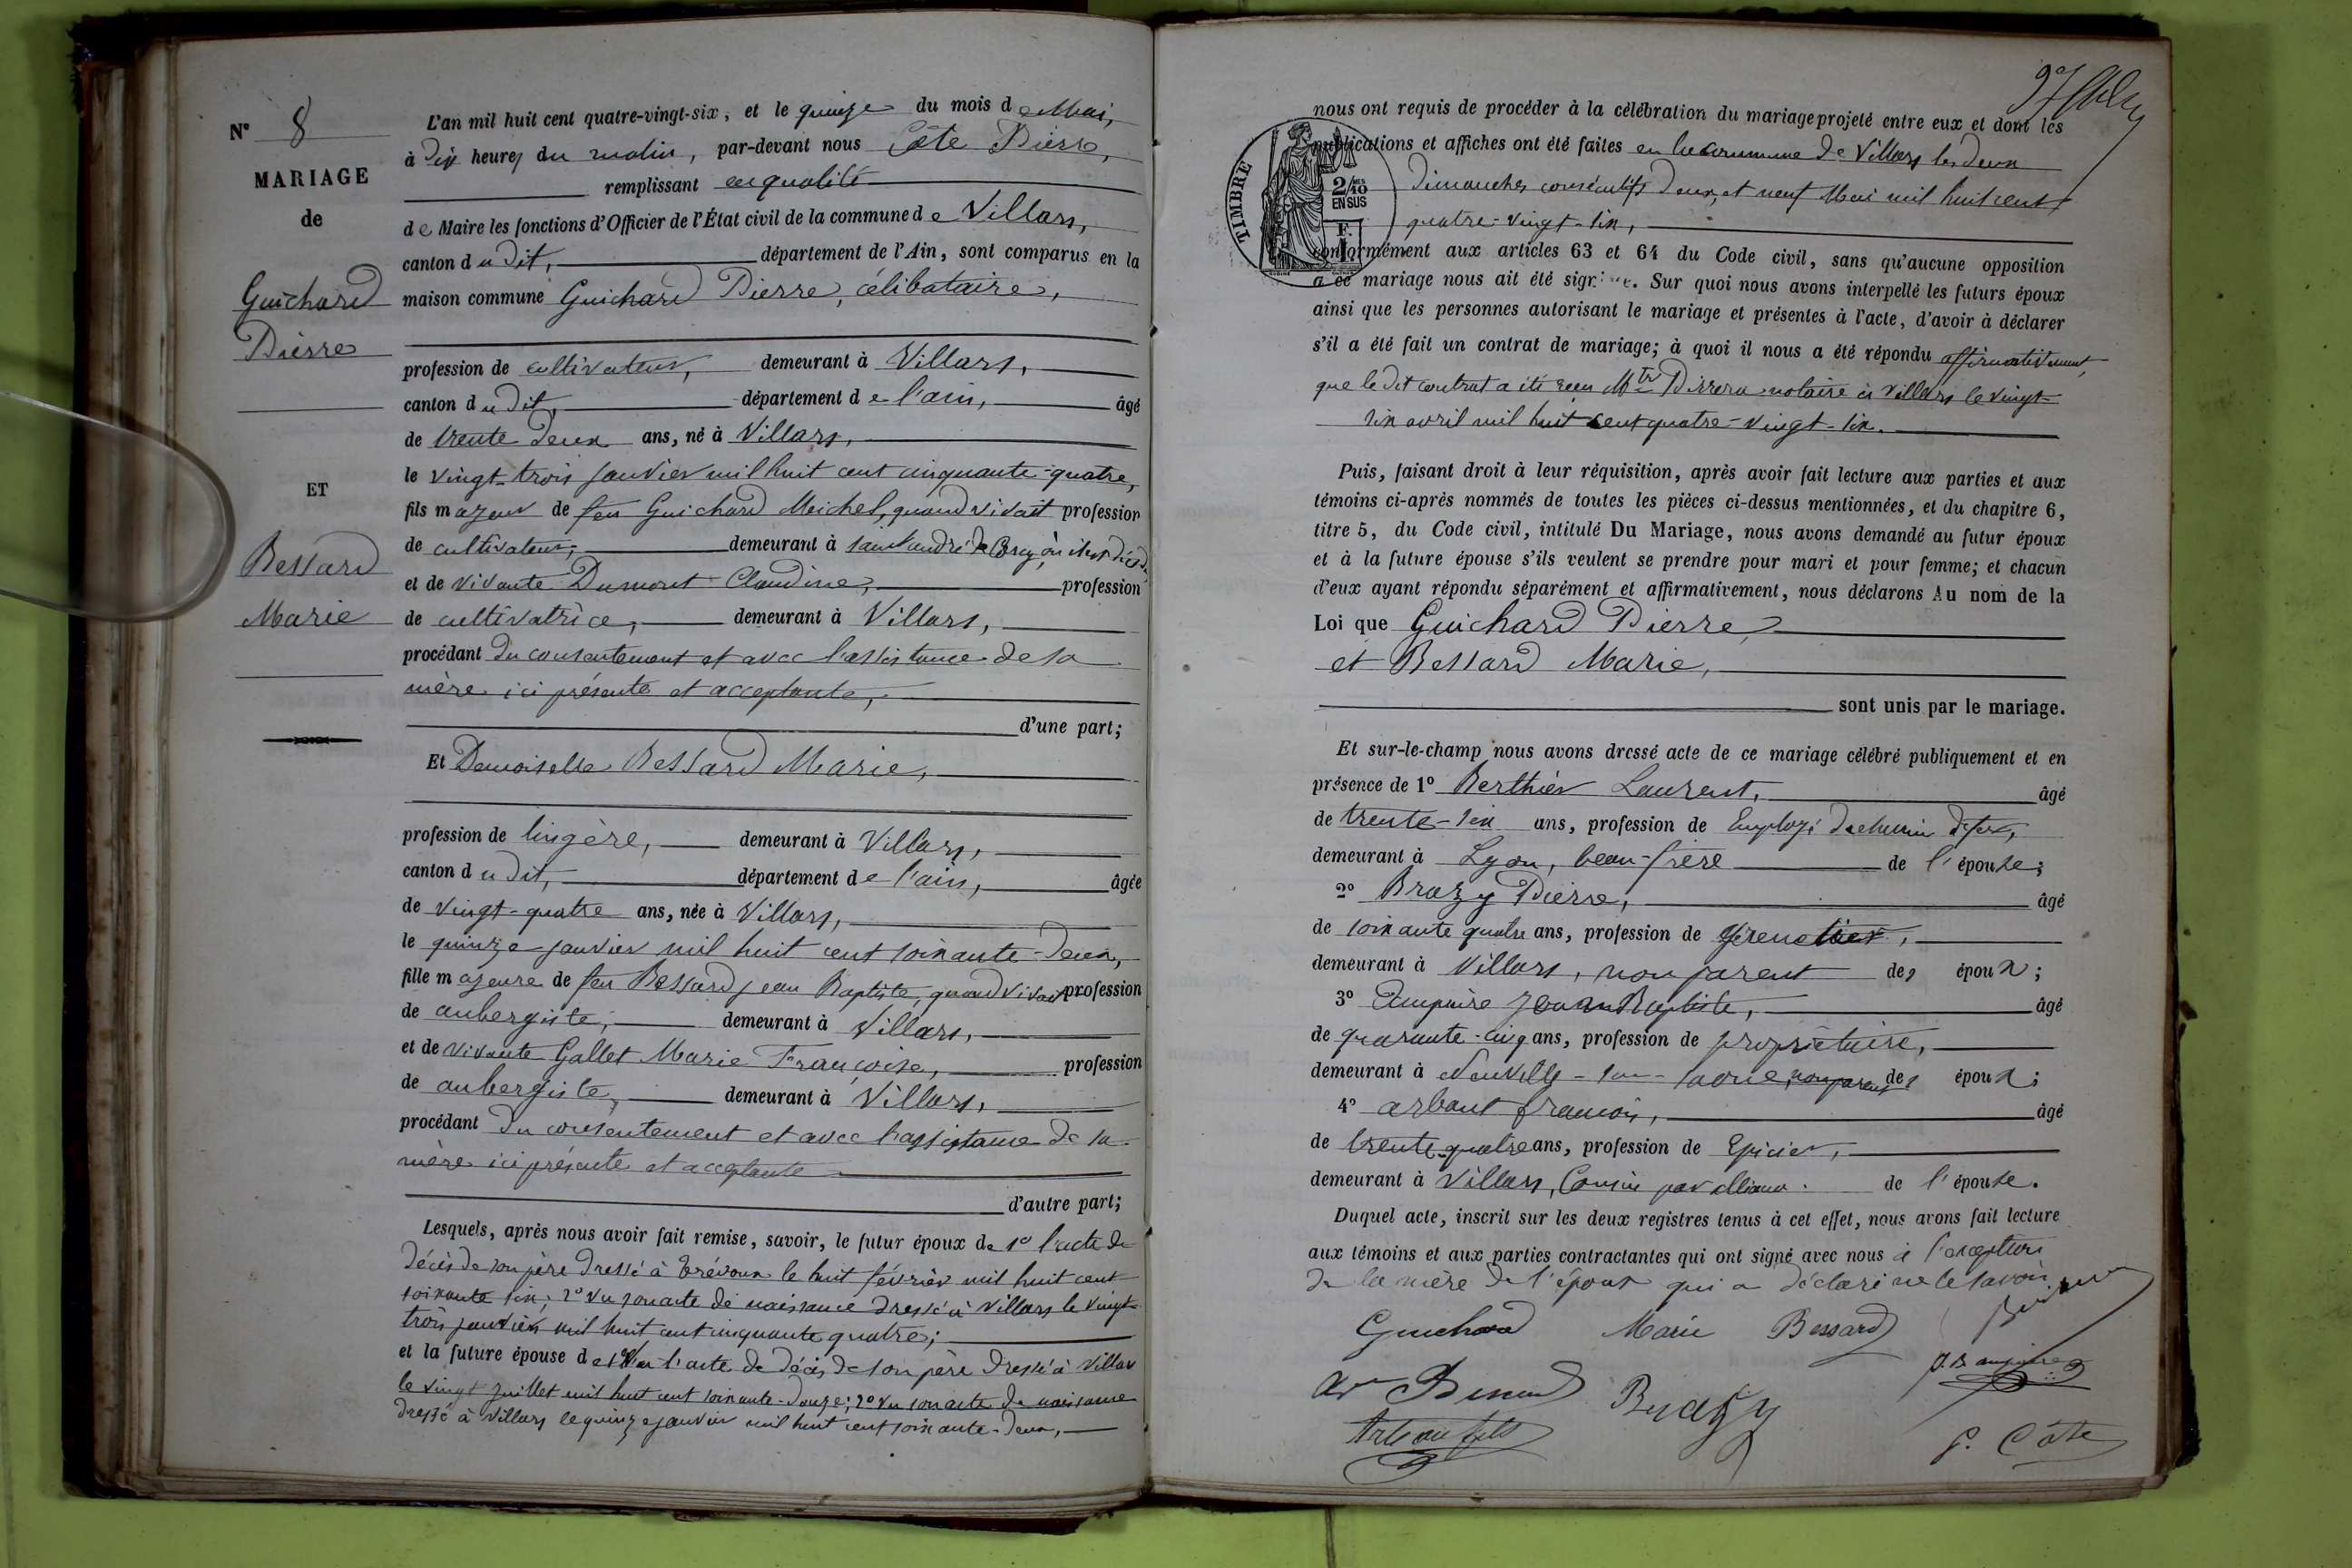 N° 8
MARIAGE
de
Guichard
Pierre
ET
Bessard
Marie
L'an mil huit cent quatre-vingt-six, et le quinze du mois de Mai,
à dix heures du matin, par-devant nous Côte Pierre,
remplissant en qualité
de Maire les fonctions d'Officier de l'État civil de la commune de Villars,
canton dudit, département de l'Ain, sont comparus en la
maison commune Guichard Pierre, célibataire,
profession de cultivateur, demeurant à Villars,
canton dudit, département de l'ain, âgé
de trente deux ans, né à Villars,
le vingt-trois janvier mil huit cent cinquante-quatre,
fils majeur de feu Guichard Meichel, quand vivait profession
de cultivateur, demeurant à saint andré de Corcy où il est décédé
et de vivante Dumont Claudine, profession
de cultivatrice, demeurant à Villars,
procédant du consentement et avec l'assistance de sa
mère ici présente et acceptante,
d'une part;
Et Demoiselle Bessard Marie,
profession de lingère, demeurant à Villars,
canton dudit, département de l'ain, âgée
de vingt-quatre ans, née à Villars,
le quinze janvier mil huit cent soixante-deux,
fille majeure de feu Bessard jean Baptiste, quand vivait profession
de aubergiste, demeurant à Villars,
et de vivante Gallet Marie Françoise, profession
de aubergiste, demeurant à Villars,
procédant du consentement et avec l'assistance de sa
mère ici présente et acceptante
d'autre part;
Lesquels, après nous avoir fait remise, savoir, le futur époux de 1° l'acte de
décès de son père dressé à Trévoux le huit février mil huit cent
soixante six; 2° vu son acte de naissance dressé à Villars le vingt-
trois janvier mil huit cent cinquante quatre;
et la future épouse de 1° vu l'acte de décès de son père dressé à Villars
le vingt juillet mil huit cent soixante-douze; 2° vu son acte de naissance
dressé à Villars le quinze janvier mil huit cent soixante-deux,
nous ont requis de procéder à la célébration du mariage projeté entre eux et dont les
publications et affiches ont été faites en la commune de Villars les deux
dimanches consécutifs deux, et neuf Mai mil huit cent
quatre-vingt-six,
TIMBRE
2/10
EN SUS
conformément aux articles 63 et 64 du Code civil, sans qu'aucune opposition
à ce mariage nous ait été signifiée. Sur quoi nous avons interpellé les futurs époux
ainsi que les personnes autorisant le mariage et présentes à l'acte, d'avoir à déclarer
s'il a été fait un contrat de mariage; à quoi il nous a été répondu affirmativement,
que le dit contrat a été reçu Mtre notaire à Villars le vingt-
six avril mil huit cent quatre-vingt-six.
Puis, faisant droit à leur réquisition, après avoir fait lecture aux parties et aux
témoins ci-après nommés de toutes les pièces ci-dessus mentionnées, et du chapitre 6,
titre 5, du Code civil, intitulé Du Mariage, nous avons demandé au futur époux
et à la future épouse s'ils veulent se prendre pour mari et pour femme; et chacun
d'eux ayant répondu séparément et affirmativement, nous déclarons Au nom de la
Loi que Guichard Pierre,
et Bessard Marie,
sont unis par le mariage.
Et sur-le-champ nous avons dressé acte de ce mariage célébré publiquement et en
présence de 1° Berthier Laurent, âgé
de trente-six ans, profession de Employé de chemin de fer,
demeurant à Lyon, beau-frère de l'épouse;
2° Brazy Pierre, âgé
de soixante quatre ans, profession de grenetier,
demeurant à Villars, non parent des époux;
3° Ampuire jean Baptiste, âgé
de quarante-cinq ans, profession de propriétaire,
demeurant à Neuville-sur-saone, non parent des époux;
4° arbant francois, âgé
de trente-quatre ans, profession de Epicier,
demeurant à Villars, Cousin par alliance de l'épouse.
Duquel acte, inscrit sur les deux registres tenus à cet effet, nous avons fait lecture
aux témoins et aux parties contractantes qui ont signé avec nous à l'exception
de la mère de l'époux qui a déclaré ne le savoir.
Guichard Marie Bessard
J. B ampuire
Brazy
P. Côte